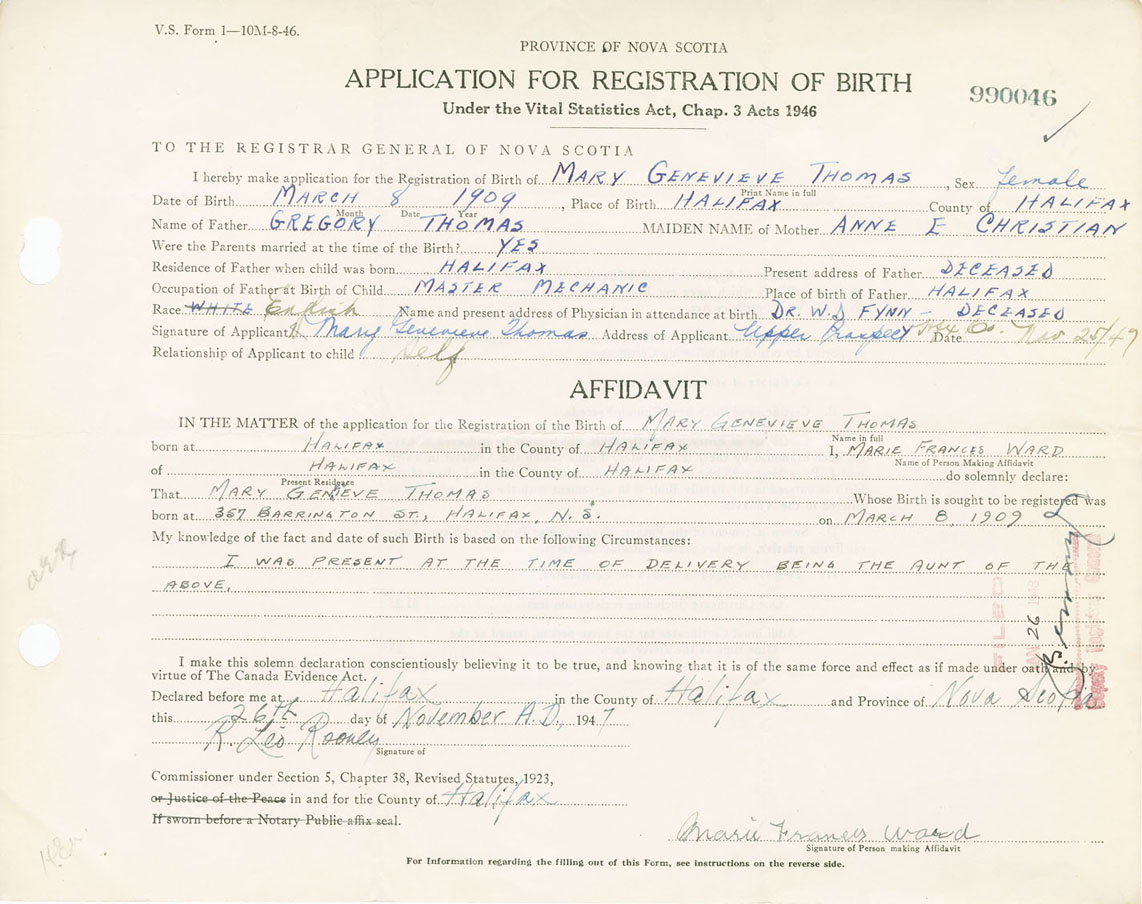 V.S. Form 1—10M-8-46.
PROVINCE OF NOVA SCOTIA
APPLICATION FOR REGISTRATION OF BIRTH
990046
Under the Vital Statistics Act, Chap. 3 Acts 1946
TO THE REGISTRAR GENERAL OF NOVA SCOTIA
I hereby make application for the Registration of Birth of MARY GENEVIEVE THOMAS, Sex female
Print Name in full
Date of Birth MARCH 8 1909, Place of Birth HALIFAX County of HALIFAX
Month Date Year
Name of Father GREGORY THOMAS MAIDEN NAME of Mother ANNE E CHRISTIAN
Were the Parents married at the time of the Birth? YES
Residence of Father when child was born HALIFAX Present address of Father DECEASED
Occupation of Father at Birth of Child MASTER MECHANIC Place of birth of Father HALIFAX
Race WHITE Name and present address of Physician in attendance at birth DR. W.D FYNN — DECEASED
Signature of Applicant Mary Genevieve Thomas Address of Applicant Upper Prospect Hfx Co. Date Nov. 25/47
Relationship of Applicant to child Self
AFFIDAVIT
IN THE MATTER of the application for the Registration of the Birth of MARY GENEVIEVE THOMAS
Name in full
born at HALIFAX in the County of HALIFAX I, MARIE FRANCES WARD
Name of Person Making Affidavit
of HALIFAX in the County of HALIFAX do solemnly declare:
Present Residence
That MARY GENEVE THOMAS Whose Birth is sought to be registered was
born at 357 BARRINGTON ST., HALIFAX, N.S. on MARCH 8, 1909
My knowledge of the fact and date of such Birth is based on the following Circumstances:
I WAS PRESENT AT THE TIME OF DELIVERY BEING THE AUNT OF THE
ABOVE.
FILED
26
I make this solemn declaration conscientiously believing it to be true, and knowing that it is of the same force and effect as if made under oath and by
virtue of The Canada Evidence Act.
Declared before me at Halifax in the County of Halifax and Province of Nova Scotia
this 26th day of November A.D., 1947
R. Leo Rooney
Signature of
Commissioner under Section 5, Chapter 38, Revised Statutes, 1923,
or Justice of the Peace in and for the County of Halifax
If sworn before a Notary Public affix seal.
Marie Frances Ward
Signature of Person making Affidavit
For Information regarding the filling out of this Form, see instructions on the reverse side.